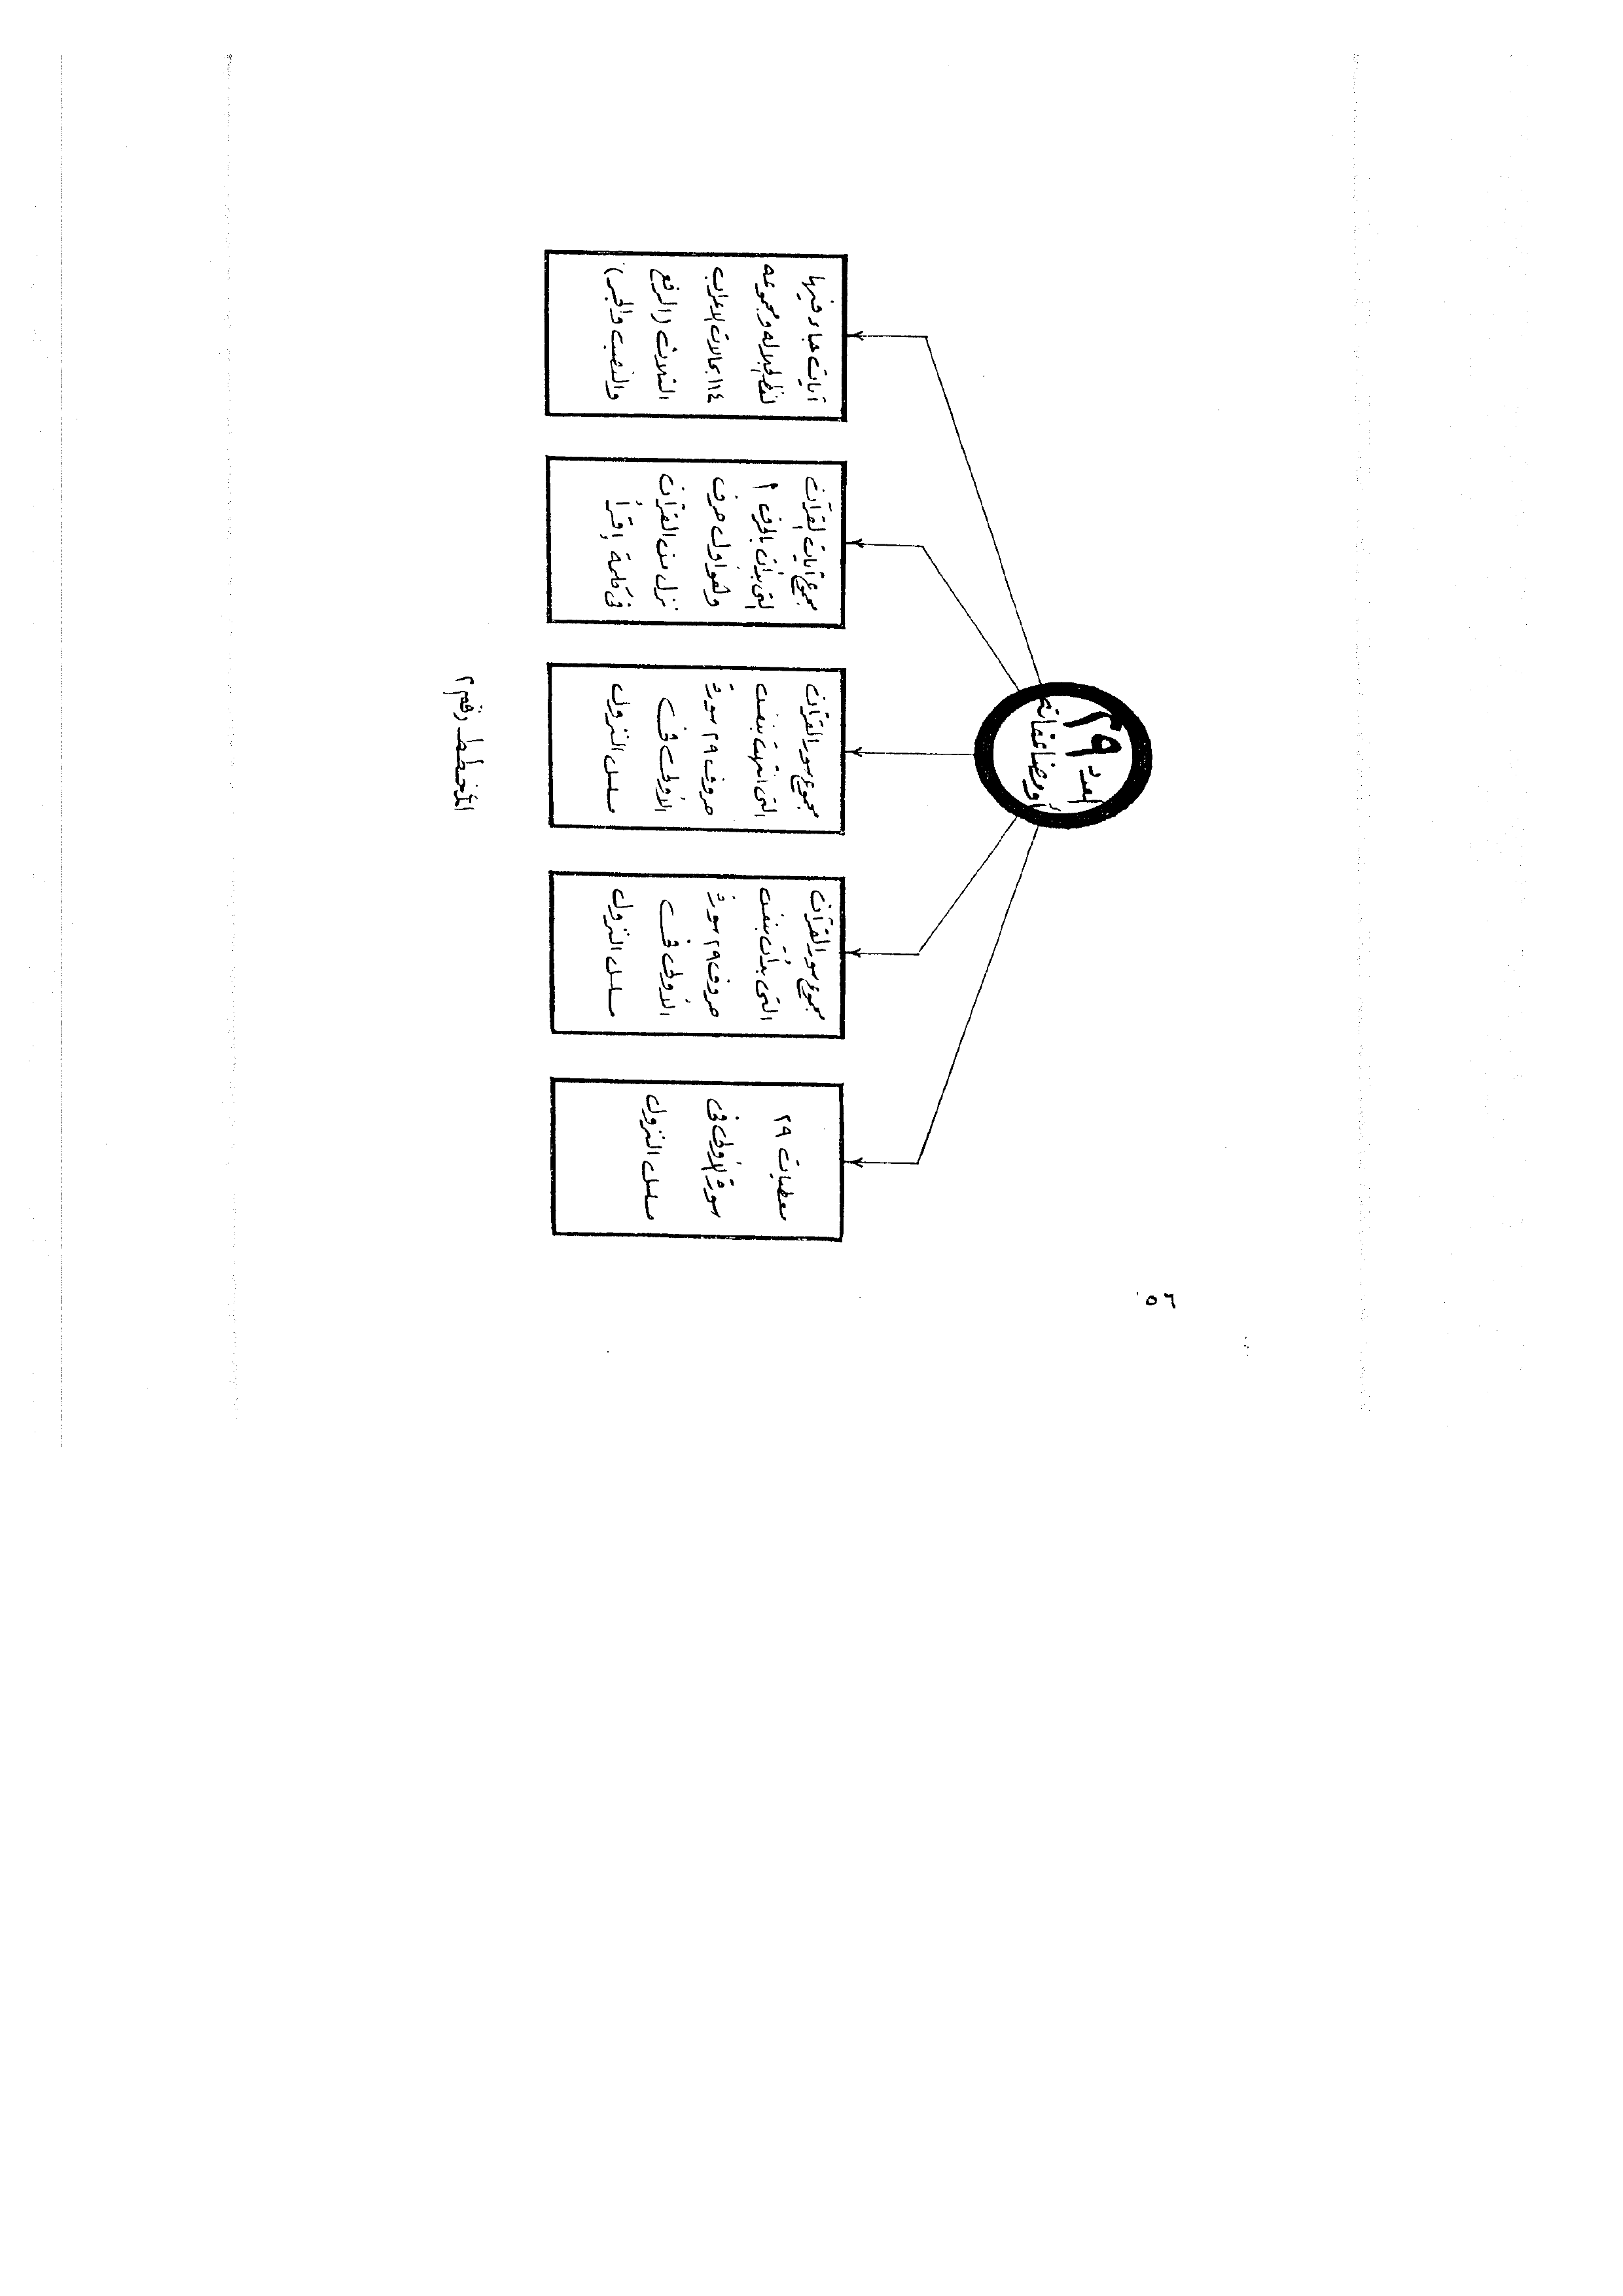 ٥٦
العدد ٢٩
ومضاعفاته
معطيات ٢٩
سورة الأولى في
تسلسل النزول
مجموع سور القرآن
التي بدأت بنفس
حروف ٢٩ سورة
الأولى في
تسلسل النزول
مجموع سور القرآن
التي انتهت بنفس
حروف ٢٩ سورة
الأولى في
تسلسل النزول
مجموع آيات القرآن
التي بدأت بالحرف أ
وهو أول حرف
نزل من القرآن
في كلمة إقرأ
آيات جاء فيها
لفظ الجلاله ومجموعه
١١٤ بحالات الإعراب
الثلاث (الرفع
والنصب والجر)
المخطط رقم ٢